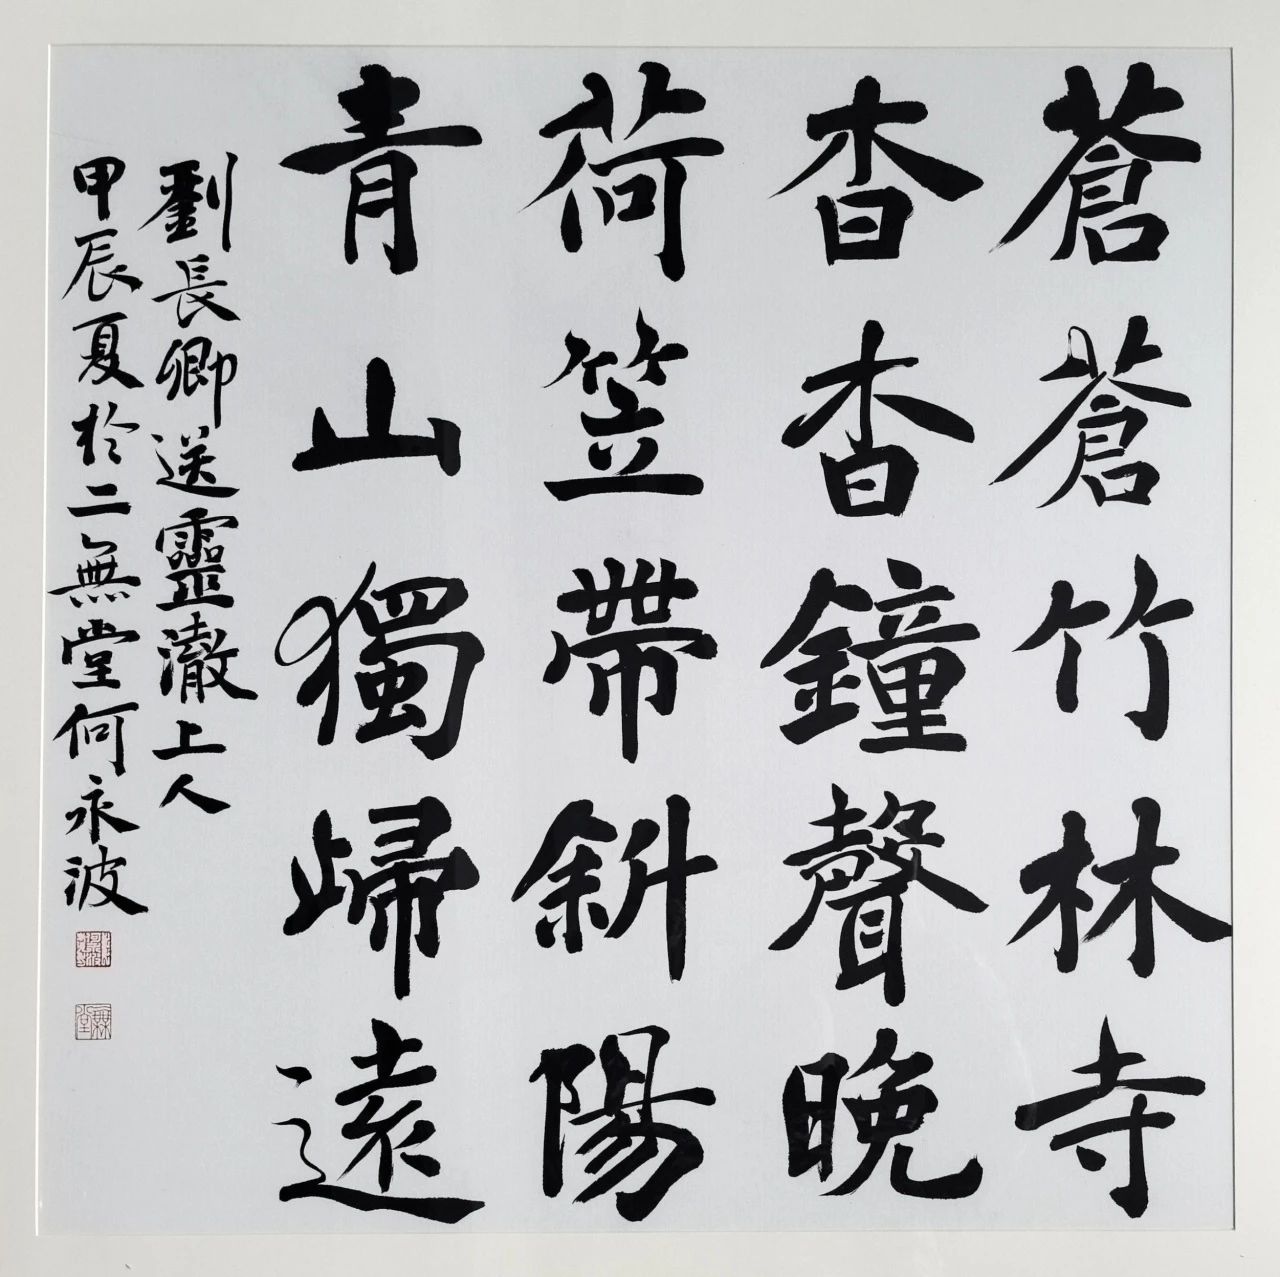 蒼蒼竹林寺
杳杳鐘聲晚
荷笠帶斜陽
青山獨歸遠
劉長卿送靈澈上人
甲辰夏於二無堂何永波